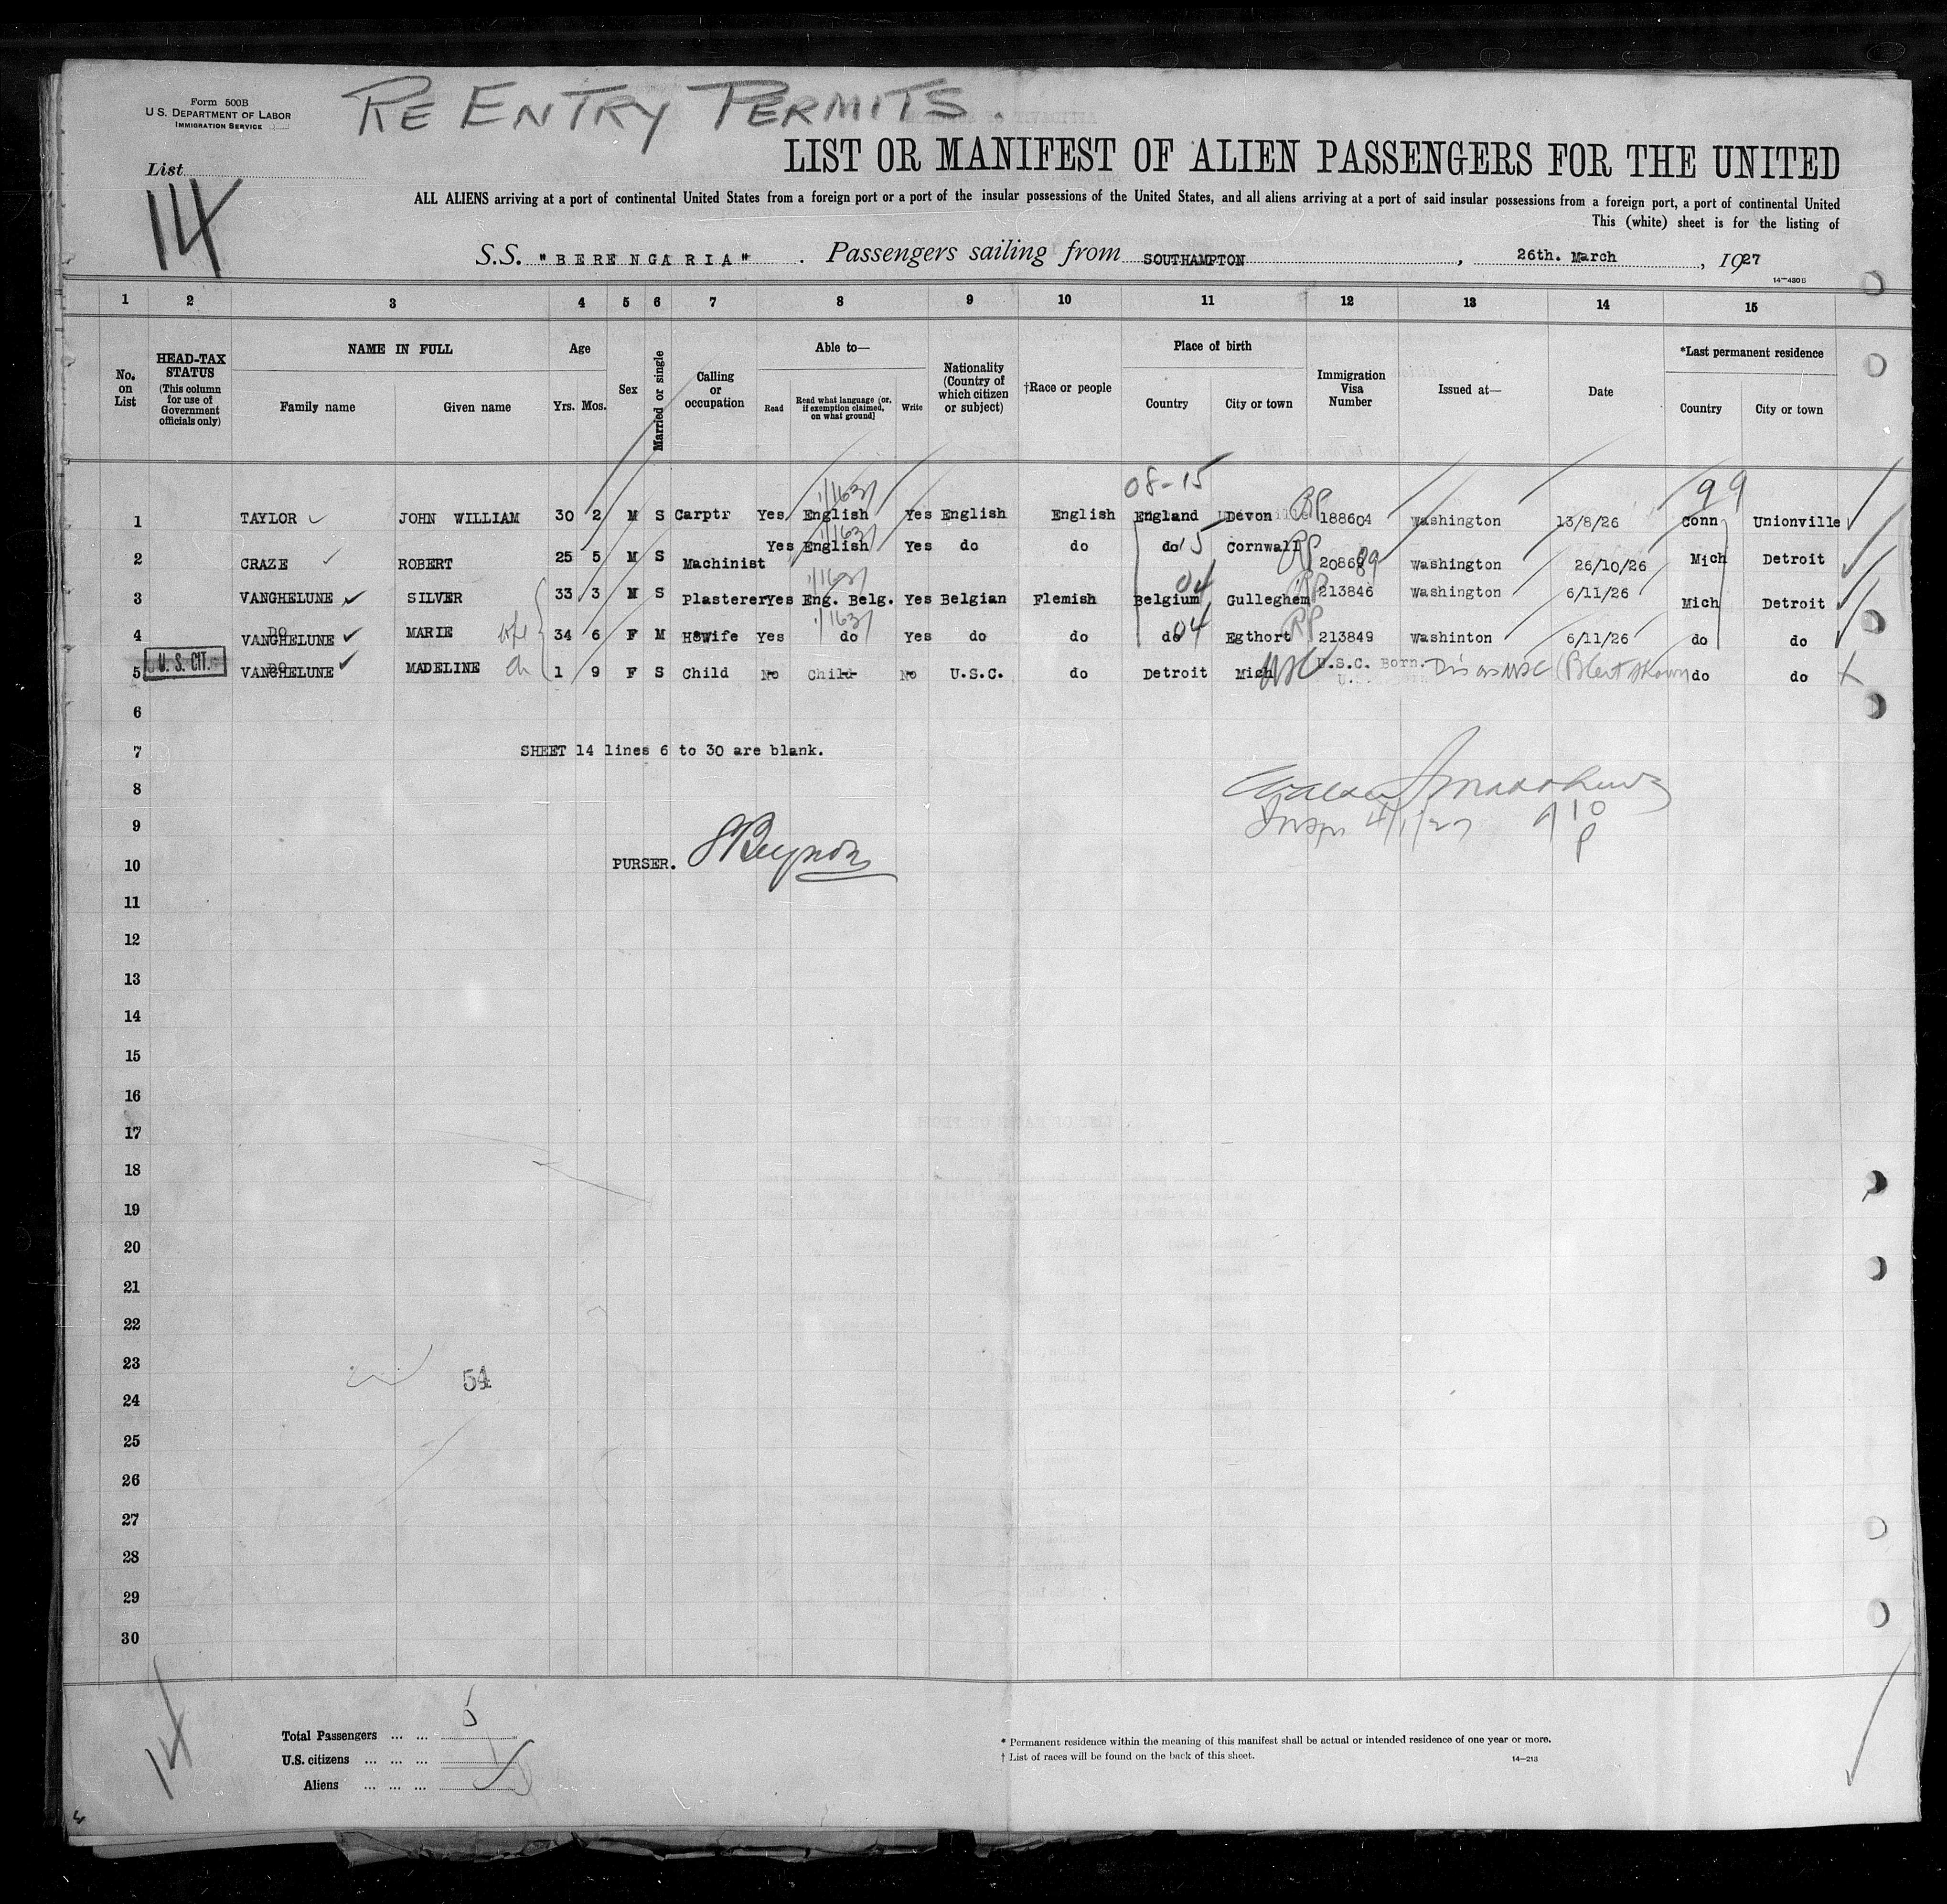 Form 500B
U.S. DEPARTMENT OF LABOR
IMMIGRATION SERVICE
RE ENTRY PERMITS.
List
14
LIST OR MANIFEST OF ALIEN PASSENGERS FOR THE UNITED
ALL ALIENS arriving at a port of continental United States from a foreign port or a port of the insular possessions of the United States, and all aliens arriving at a port of said insular possessions from a foreign port, a port of continental United
This (white) sheet is for the listing of
S.S. "BERENGARIA" . Passengers sailing from SOUTHAMPTON , 26th. March , 1927
14—430B
1 2 3 4 5 6 7 8 9 10 11 12 13 14 15
No. on List
HEAD-TAX STATUS (This column for use of Government officials only)
NAME IN FULL
Family name Given name
Age
Yrs. Mos.
Sex
Married or single
Calling or occupation
Able to—
Read Read what language [or, if exemption claimed, on what ground] Write
Nationality (Country of which citizen or subject)
†Race or people
Place of birth
Country City or town
Immigration Visa Number
Issued at—
Date
*Last permanent residence
Country City or town
08-15 99
1 TAYLOR JOHN WILLIAM 30 2 M S Carptr Yes English Yes English English England Devon RP 188604 Washington 13/8/26 Conn Unionville
2 CRAZE ROBERT 25 5 M S Machinist Yes English Yes do do do 15 Cornwall RP 20869 89 Washington 26/10/26 Mich Detroit
3 VANGHELUNE SILVER 33 3 M S Plasterer Yes Eng. Belg. Yes Belgian Flemish Belgium 04 Gulleghem RP 213846 Washington 6/11/26 Mich Detroit
4 DO VANGHELUNE MARIE wife 34 6 F M Hswife Yes do Yes do do do 04 Egthort RP 213849 Washinton 6/11/26 do do
5 U.S. CIT. DO VANGHELUNE MADELINE ch 1 9 F S Child No Child No U.S.C. do Detroit Mich USC U.S.C. Born. Dis as USC (B Cert shown do do
6
7 SHEET 14 lines 6 to 30 are blank.
8
9 Insp 4/1/27 910 P
10 PURSER.
11
12
13
14
15
16
17
18
19
20
21
22
23 54
24
25
26
27
28
29
30
14
Total Passengers ... ... 5
U.S. citizens ... ... ... 1
Aliens ... ... ...
* Permanent residence within the meaning of this manifest shall be actual or intended residence of one year or more.
† List of races will be found on the back of this sheet.
14—213